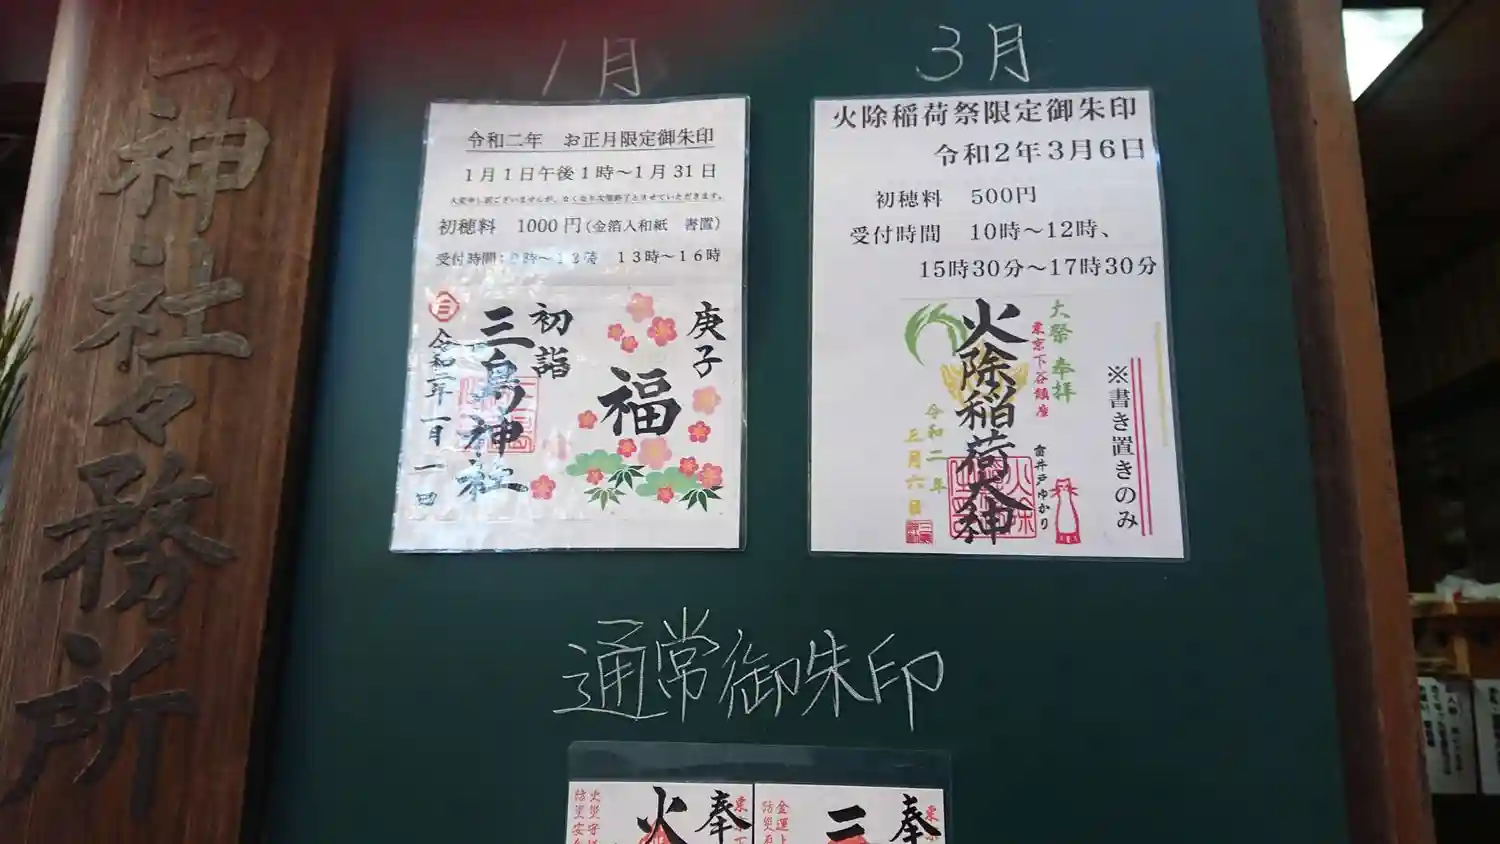 神社々務所
1月
令和二年 お正月限定御朱印
1月1日午後1時～1月31日
大変申し訳ございませんが、なくなり次第終了とさせていただきます。
初穂料 1000円(金箔入和紙 書置)
受付時間:9時～12時 13時～16時
庚子
福
初詣
三島神社
令和二年一月一日
3月
火除稲荷祭限定御朱印
令和2年3月6日
初穂料 500円
受付時間 10時～12時、
15時30分～17時30分
※書き置きのみ
大祭 奉拝
東京下谷鎮座
雷井戸ゆかり
火除稲荷大神
令和二年
三月六日
通常御朱印
奉
火
奉
三